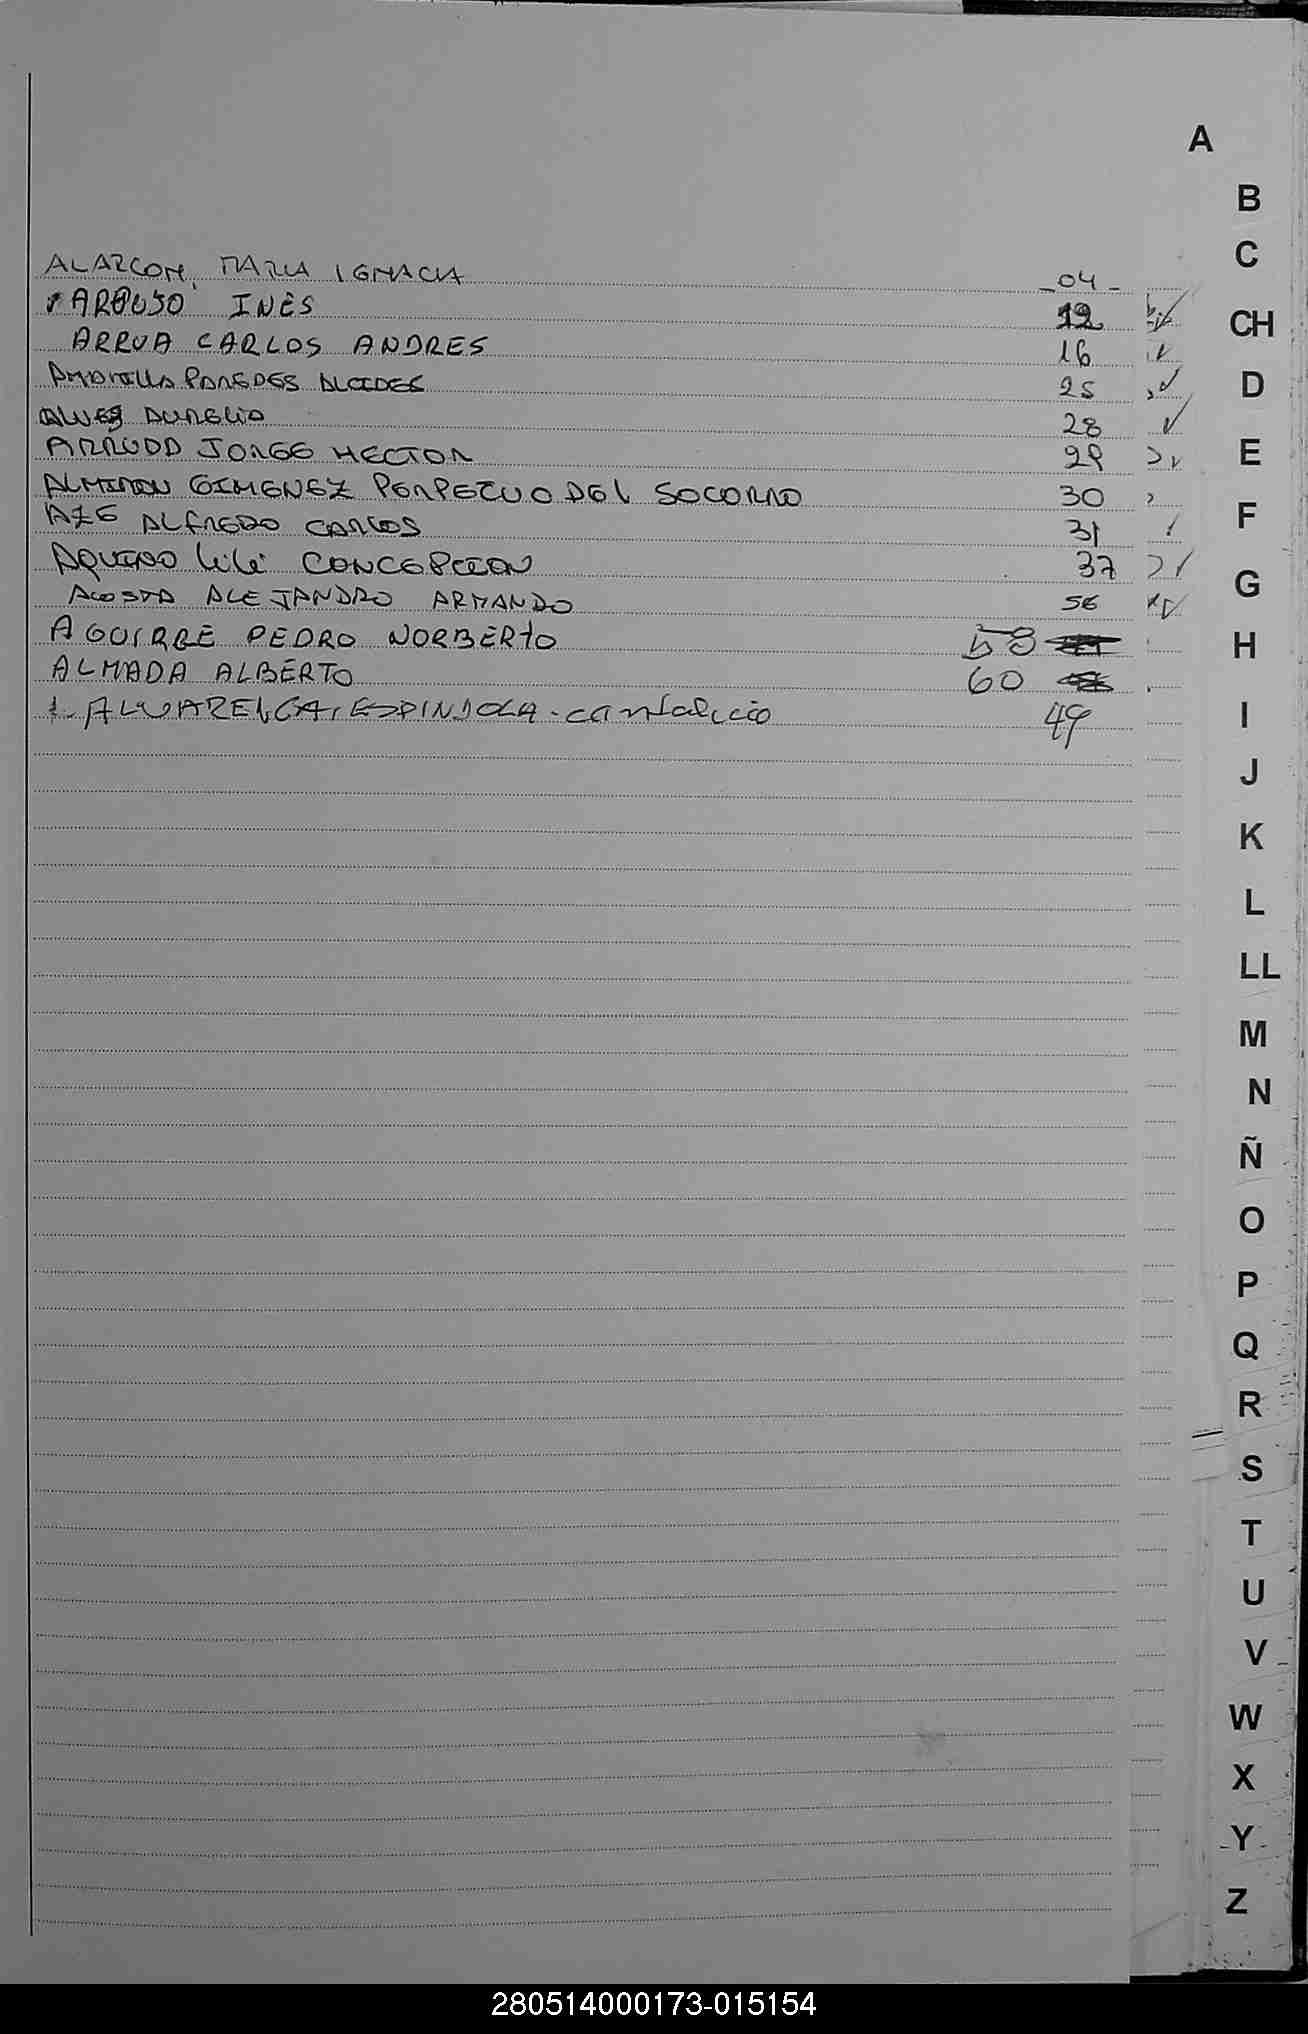 A
B
C
ALARCON, MARIA IGNACIA 04
ARAUJO INES 12
CH
ARRUA CARLOS ANDRES 16
D
PAREDES ALCIDES 25
ALVES AURELIO 28
E
ARRUDA JORGE HECTOR 29
ALMIRON GIMENEZ PERPETUO DEL SOCORRO 30
F
AZE ALFREDO CARLOS 31
AQUINO Lili CONCEPCION 37
G
ACOSTA ALEJANDRO ARMANDO 56
AGUIRRE PEDRO NORBERTO 58
H
ALMADA ALBERTO 60
ALVARENGA, ESPINJOLA - cantalicio 49
I
J
K
L
LL
M
N
Ñ
O
P
Q
R
S
T
U
V
W
X
Y
Z
280514000173-015154